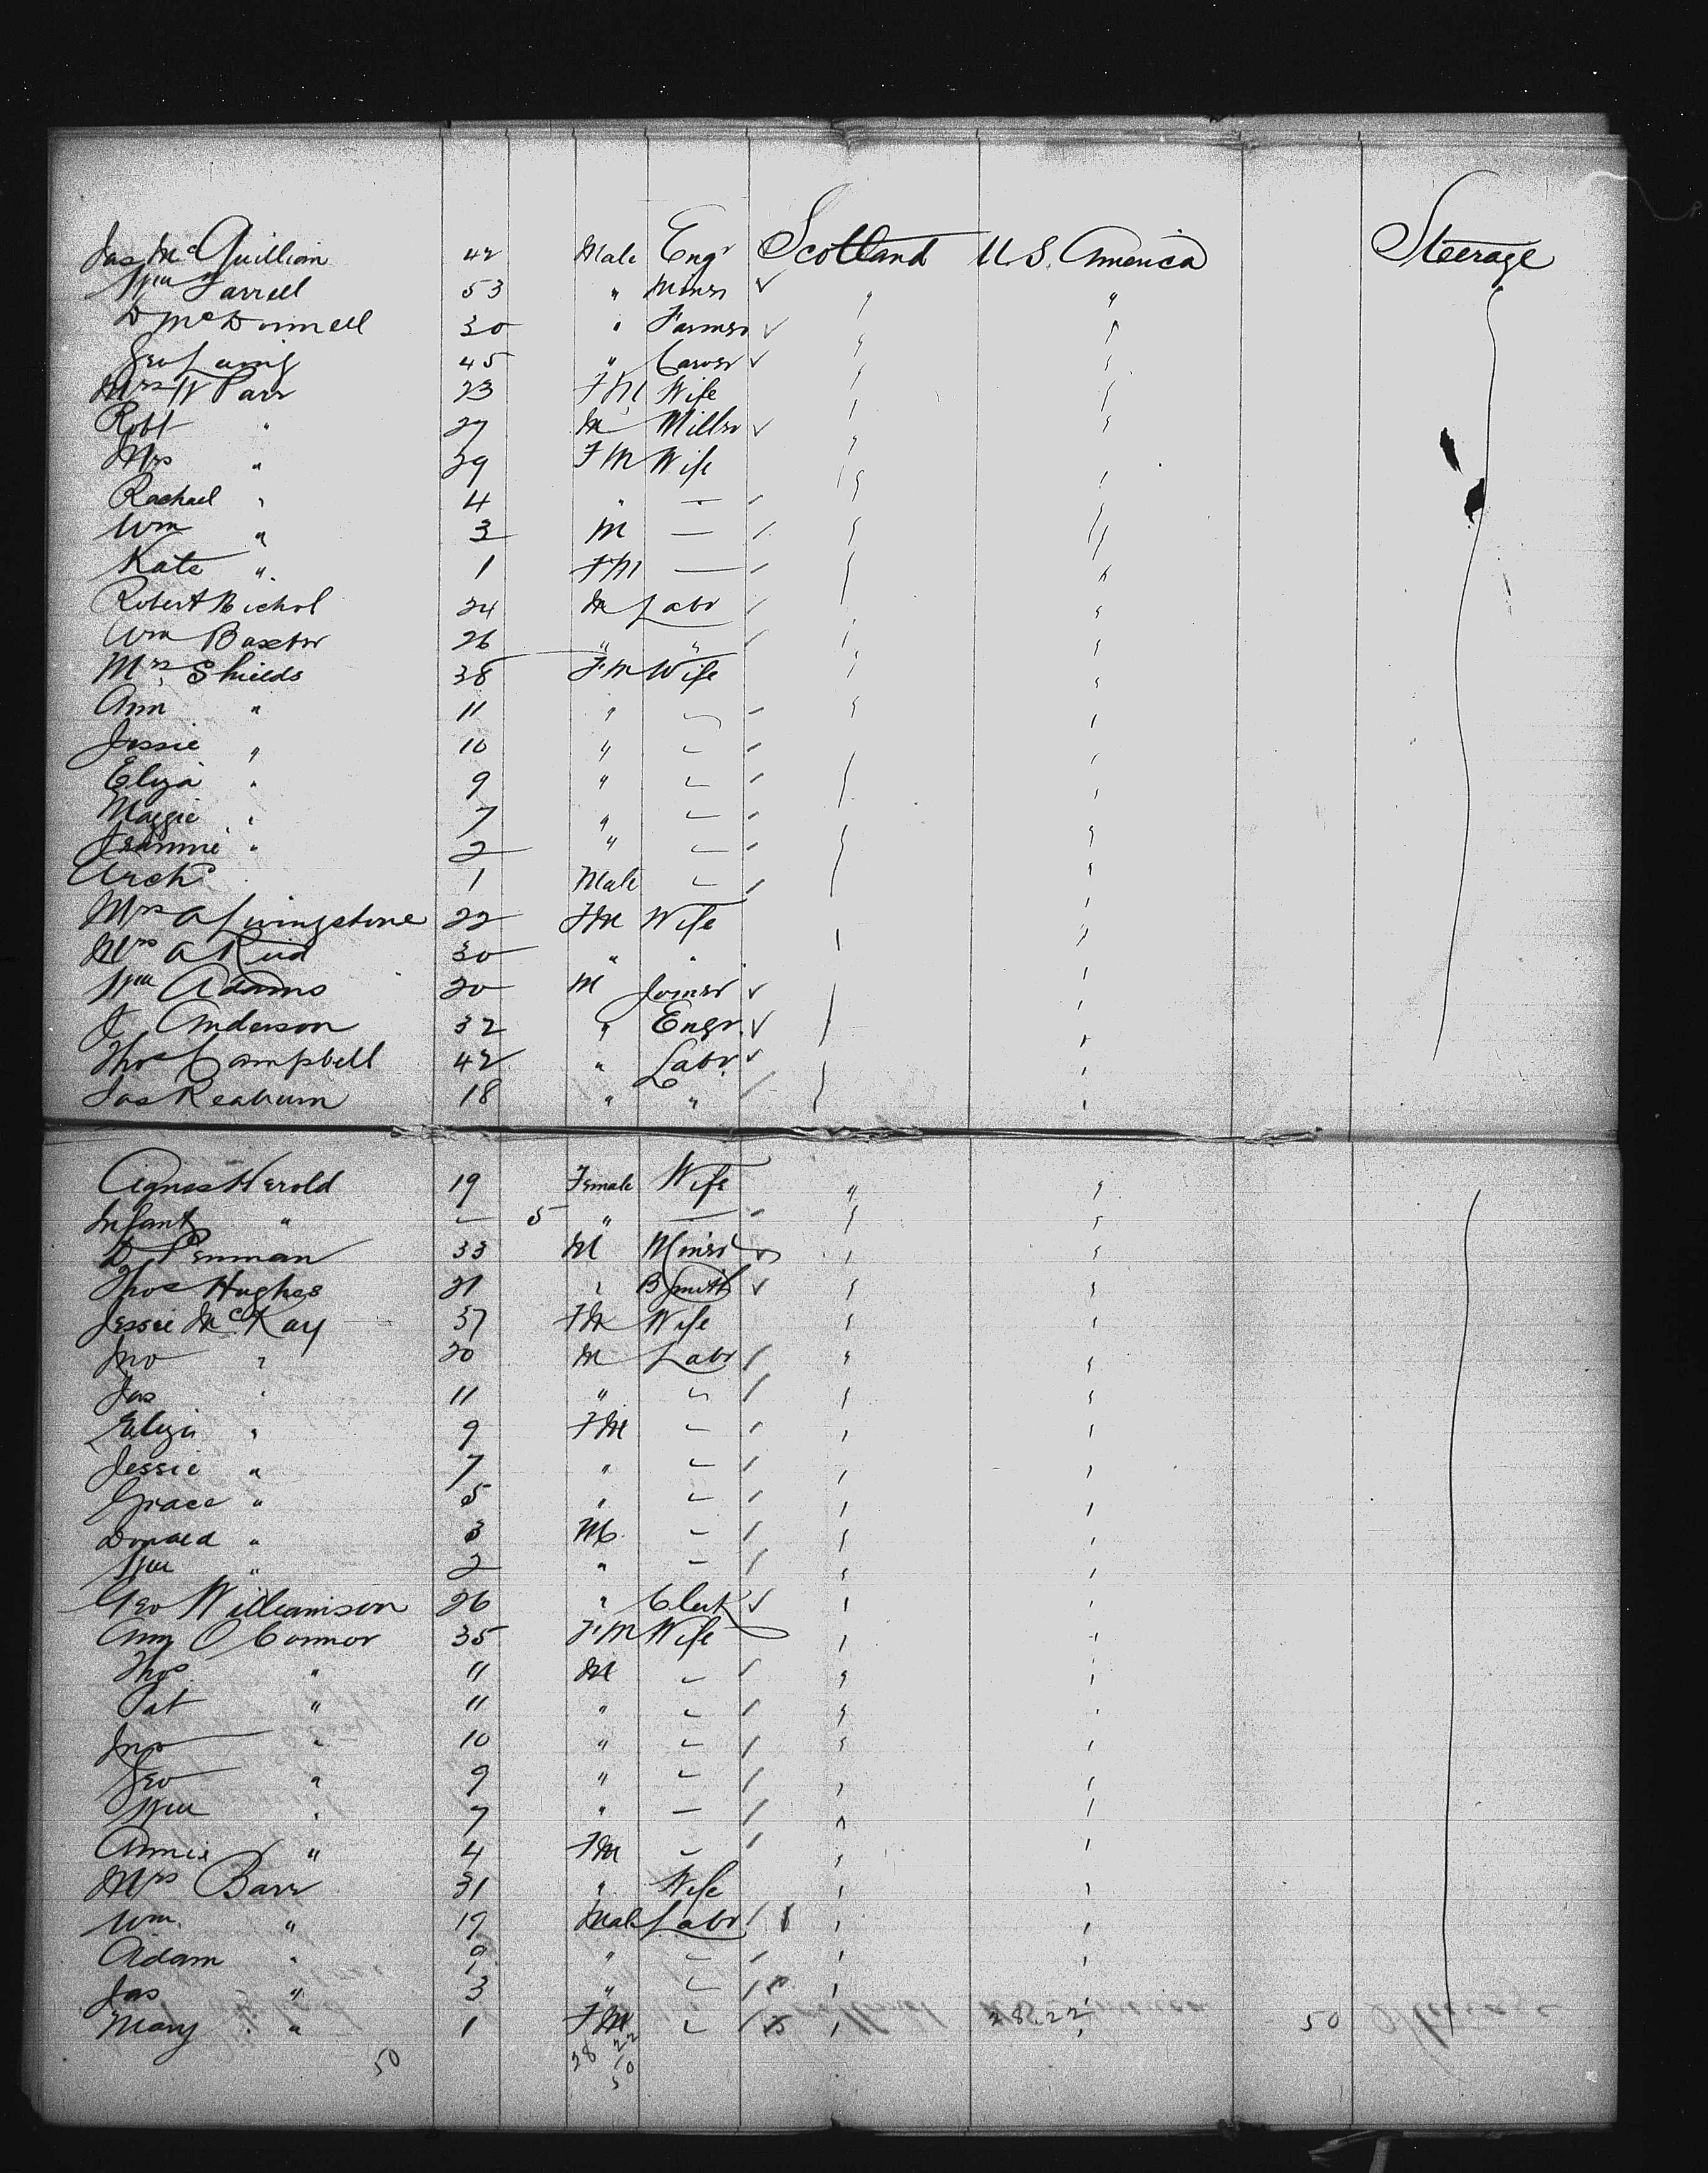 Jas McQuillian 42 Male Engr Scotland U.S. America Steerage
Wm Farrell 53 " Miner " "
D McDonnell 30 " Farmer " "
Geo Laing 45 " Carver " "
Mrs W Parr 23 FM Wife " "
Robt " 27 M Miller " "
Mrs " 29 FM Wife " "
Rachael " 4 " — " "
Wm " 3 M — " "
Kate " 1 FM — " "
Robert Nichol 24 M Labr " "
Wm Baxter 26 " " " "
Mrs Shields 38 FM Wife " "
Ann " 11 " — " "
Jessie " 10 " — " "
Eliza " 9 " — " "
Maggie " 7 " — " "
Jeannie " 2 " — " "
Archd 1 Male — " "
Mrs A Livingstone 22 FM Wife "
Mrs A Reid 30 " " " "
Wm Adams 20 M Joiner " "
J Anderson 32 " Engr " "
Thos Campbell 42 " Labr " "
Jas Reaburn 18 " " " "
Agnes Herold 19 Female Wife " "
Infant " — 5 " — " "
D Penman 33 M Miner " "
Thos Hughes 21 " B Smith " "
Jessie McKay 37 FM Wife " "
Jno " 20 M Labr " "
Jas " 11 " — " "
Eliza " 9 FM — " "
Jessie " 7 " — " "
Grace " 5 " — " "
Donald " 3 M — " "
Wm " 2 " — " "
Geo Williamson 26 " Clerk " "
Ann O Connor 35 FM Wife " "
Thos " 11 M — " "
Pat " 11 " — " "
Jno " 10 " — " "
Geo " 9 " — " "
Wm " 7 " — " "
Annie " 4 FM — " "
Mrs Barr 31 " Wife " "
Wm " 19 Male Labr " "
Adam " 9 " — " "
Jas " 3 " — " "
Mary " 1 FM — " 28.22 " 50
50 28 22
50